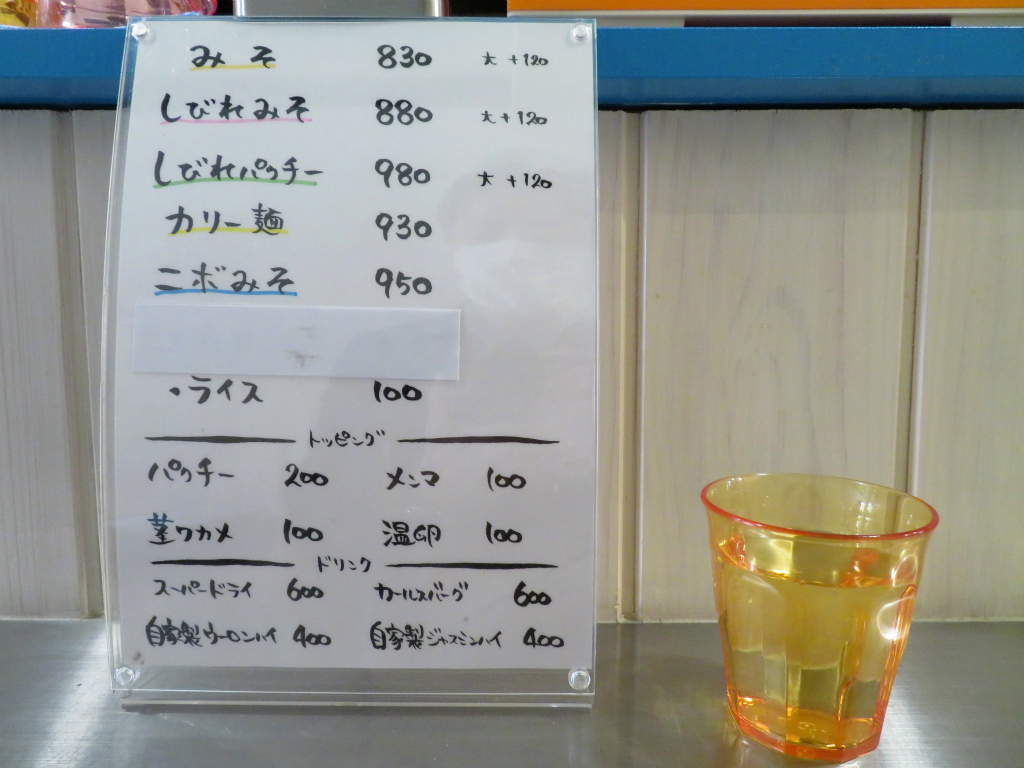 みそ 830 大 +120
しびれみそ 880 大 +120
しびれパクチー 980 大 +120
カリー麺 930
ニボみそ 950
・ライス 100
トッピング
パクチー 200 メンマ 100
茎ワカメ 100 温卵 100
ドリンク
スーパードライ 600 カールスバーグ 600
自家製ウーロンハイ 400 自家製ジャスミンハイ 400